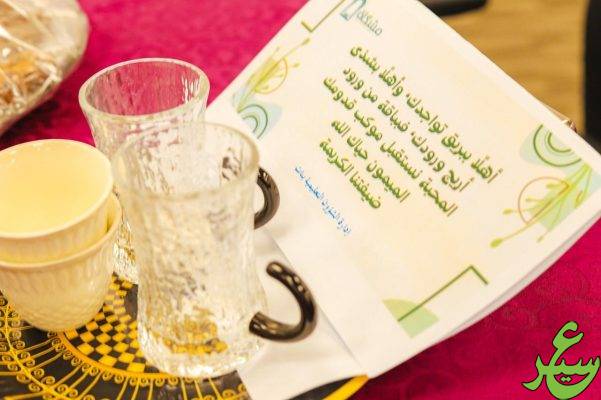 مشكاة
أهلًا ببريق تواجدك، وأهلًا بشذى
أريج ورودك، ضيافة من ورود
المحبة نستقبل موكب قدومك
الميمون حياك الله
ضيفتنا الكريمة
إدارة الشؤون التعليمية بنات
عسير